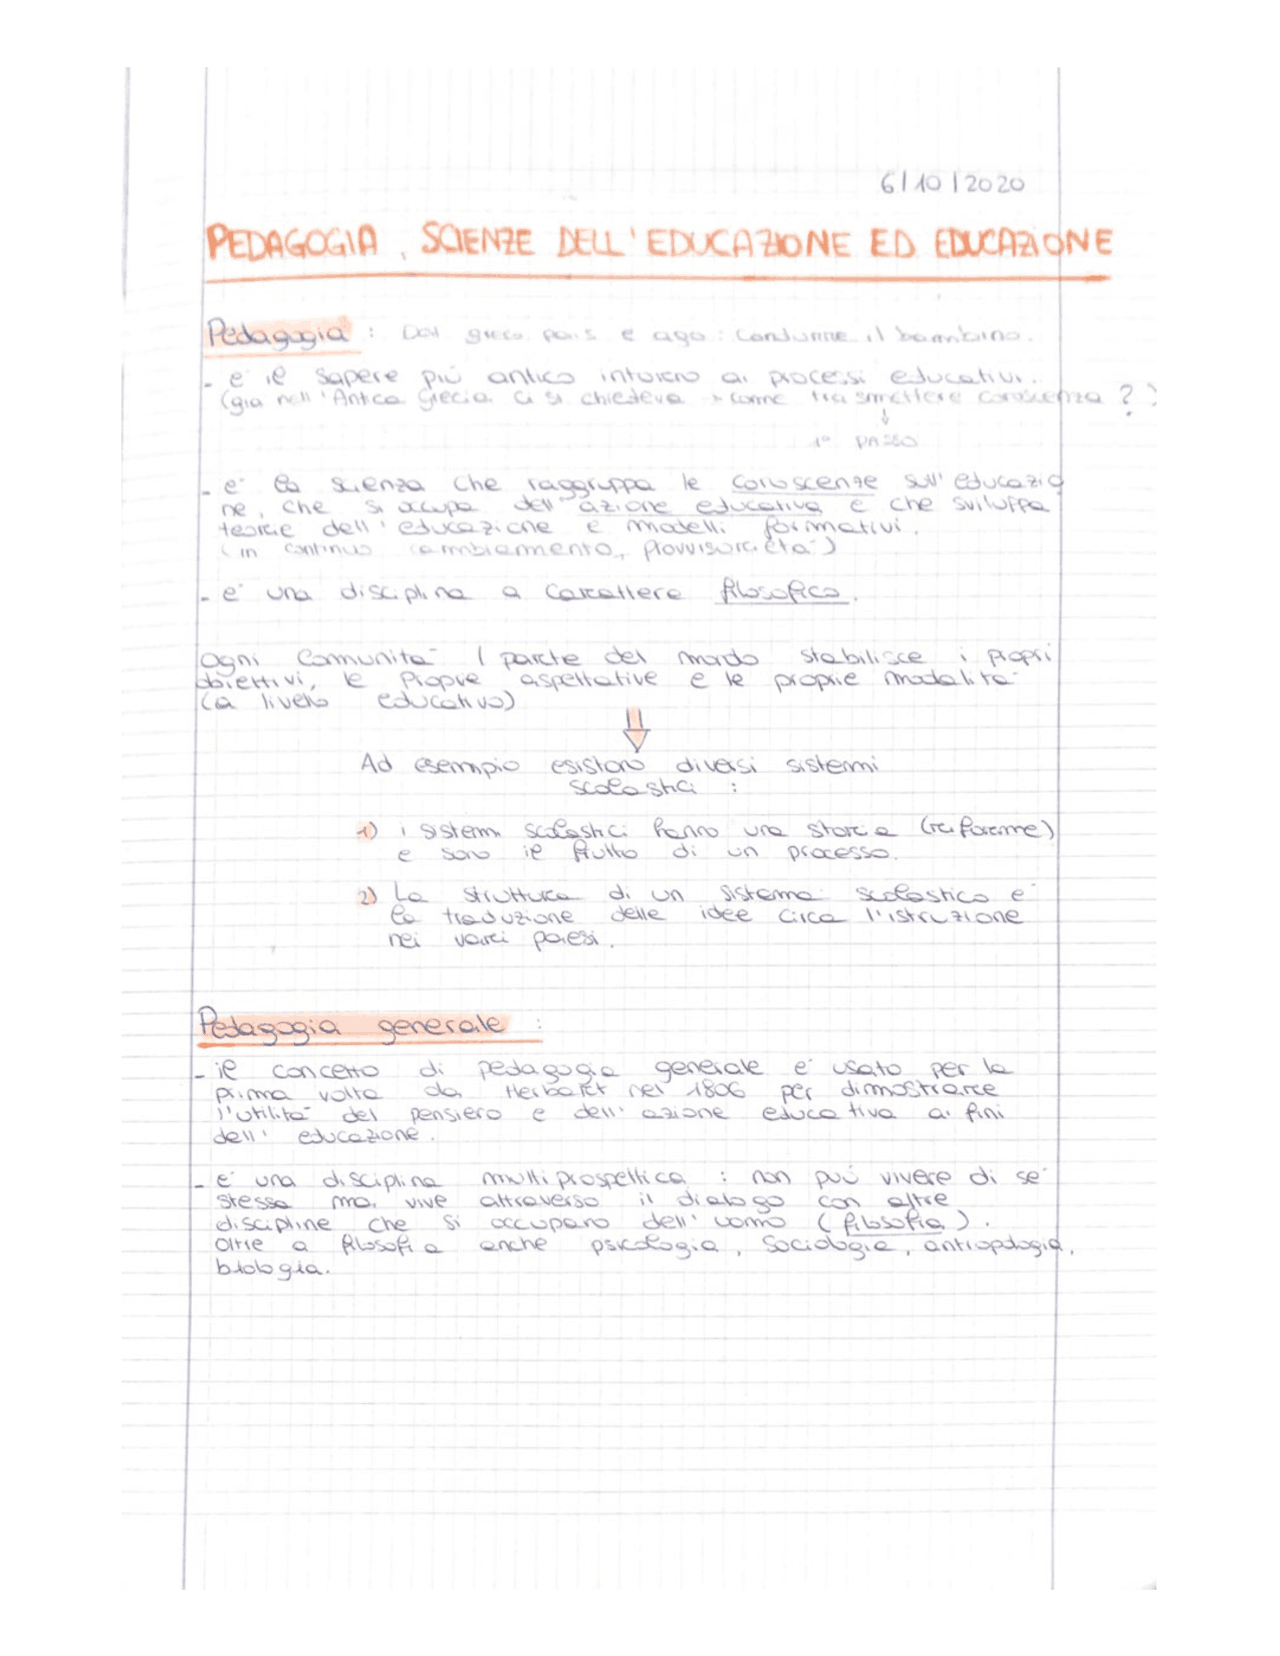 6/10/2020
PEDAGOGIA, SCIENZE DELL'EDUCAZIONE ED EDUCAZIONE
Pedagogia : Dal greco pais e ago : condurre il bambino.
- e' il sapere più antico intorno ai processi educativi.
(gia nell'Antica Grecia ci si chiedeva → come trasmettere conoscenza ? )
↓
1° PASSO
- e' la scienza che raggruppa le conoscenze sull'educazio
ne, che si occupa dell'azione educativa e che sviluppa
teorie dell'educazione e modelli formativi.
(in continuo cambiamento, provvisorietà)
- e' una disciplina a carattere filosofico.
Ogni comunita' / parte del mondo stabilisce i propri
obiettivi, le proprie aspettative e le proprie modalita'
(a livello educativo)
⇓
Ad esempio esistono diversi sistemi
scolastici :
1) i sistemi scolastici hanno una storia (riforme)
e sono il frutto di un processo.
2) La struttura di un sistema scolastico e'
la traduzione delle idee circa l'istruzione
nei vari paesi.
Pedagogia generale :
- il concetto di pedagogia generale e' usato per la
prima volta da Herbart nel 1806 per dimostrare
l'utilita' del pensiero e dell'azione educativa ai fini
dell'educazione.
- e' una disciplina multiprospettica : non può vivere di se'
stessa ma vive attraverso il dialogo con altre
discipline che si occupano dell'uomo (filosofia).
Oltre a filosofia anche psicologia, sociologia, antropologia,
biologia.